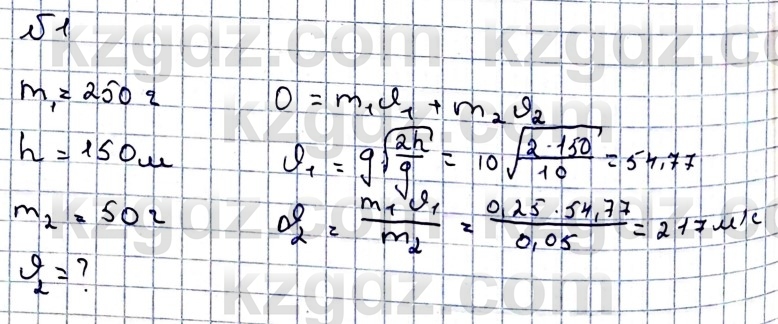 №1
m₁ = 250 г
h = 150 м
m₂ = 50 г
υ₂ = ?
0 = m₁υ₁ + m₂υ₂
υ₁ = g√(2h/g) = 10√(2·150/10) = 54,77
υ₂ = m₁υ₁/m₂ = 0,25·54,77/0,05 = 217 м/с
kzgdz.com